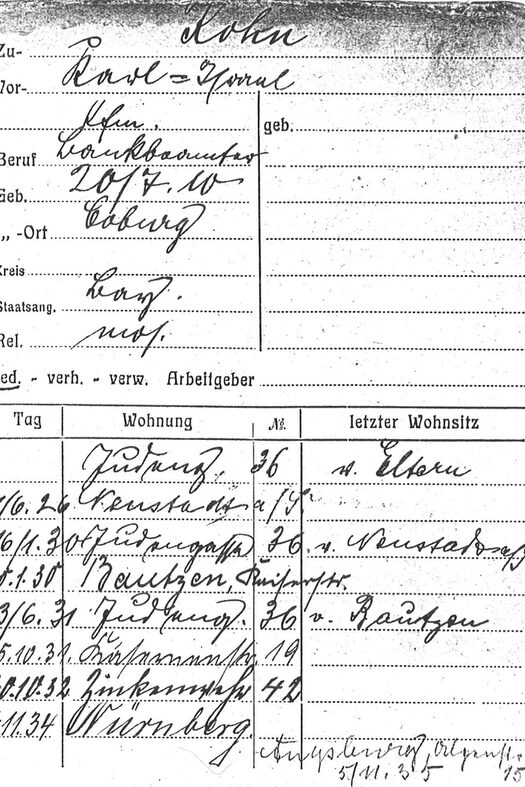 Kohn
Zu-
Vor- Karl = Israel
Kfm. geb.
Beruf Bankbeamter
Geb. 20/7.10
„ -Ort Coburg
Kreis
Staatsang. Bay.
Rel. mos.
led. - verh. - verw. Arbeitgeber
Tag Wohnung № letzter Wohnsitz
Judeng. 36 v. Eltern
/6.26 Neustadt a/
6/1.30 Judengasse 36 v. Neustadt
.1.30 Bautzen, Kaiserstr.
3/6.31 Judeng. 36 v. Bautzen
5.10.31 Kasernenstr. 19
0.10.32 Zinkenwehr 42
.11.34 Nürnberg
Augsburg,
5/11.35 15